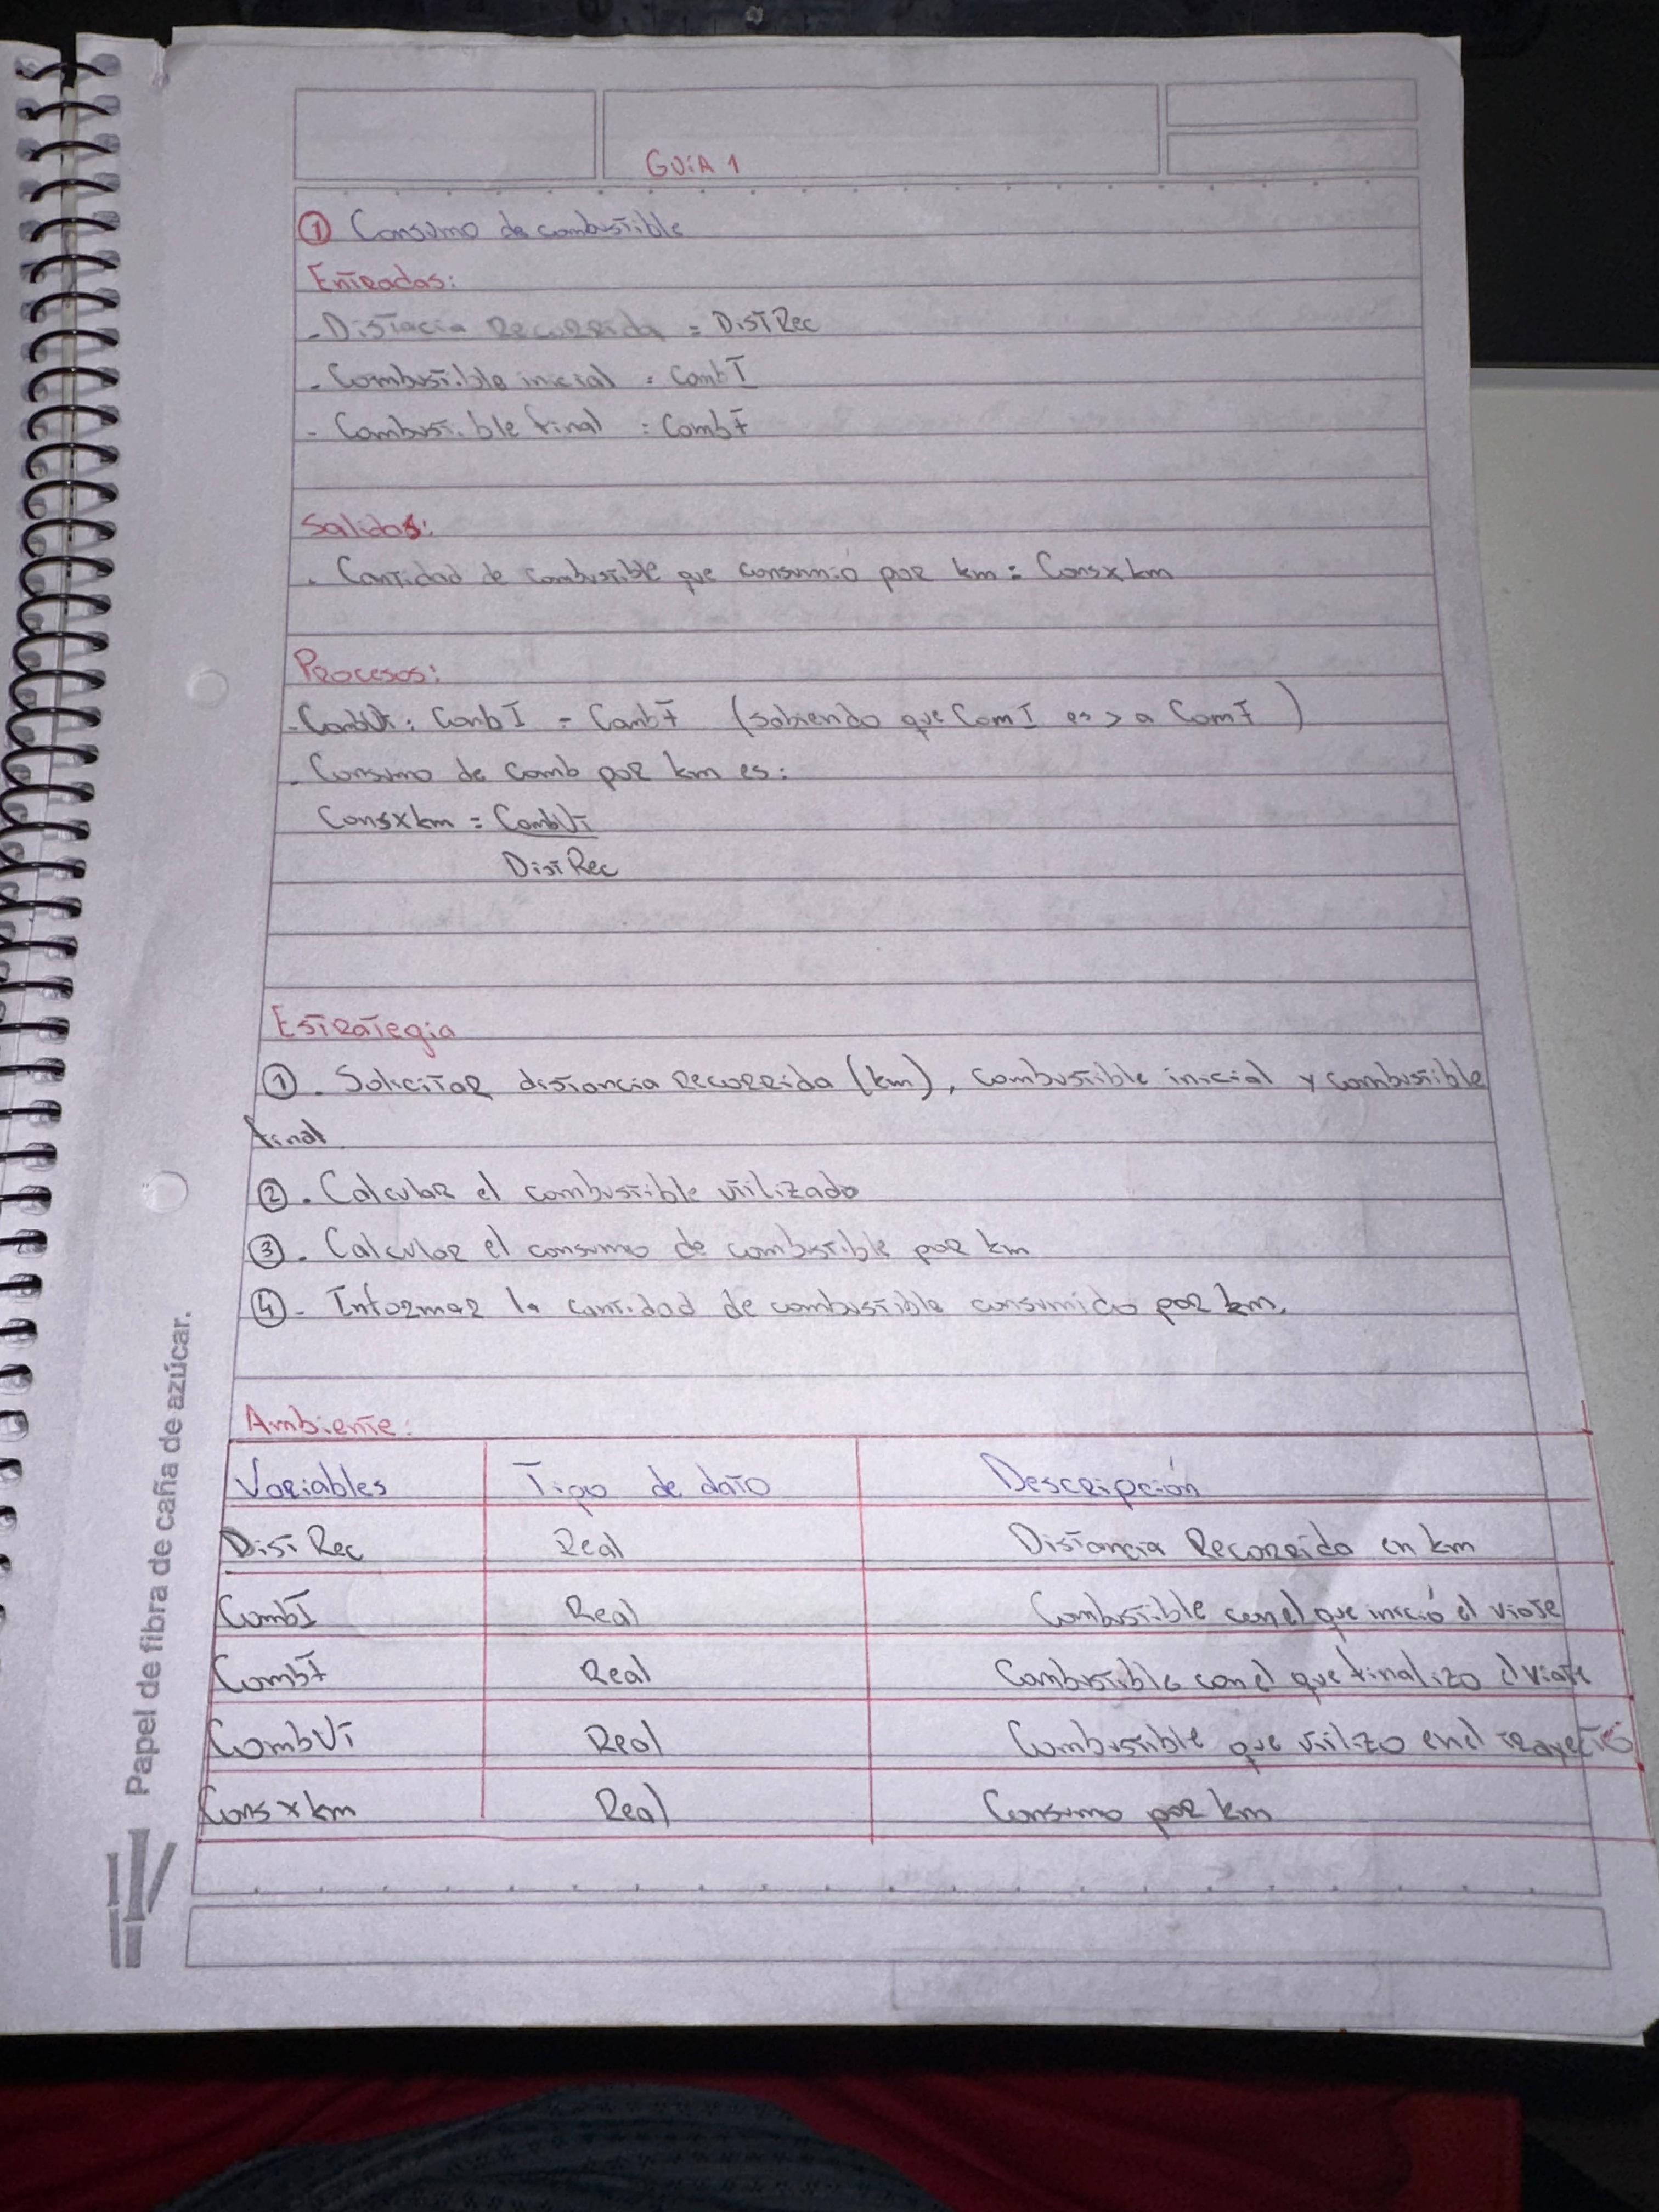 GUIA 1
① Consumo de combustible
Entradas:
- Distacia Recorrida = DistRec
- Combustible inicial = CombI
- Combustible final = CombF
Salidas:
- Cantidad de combustible que consumió por km = Consxkm
Procesos:
- CombUt: CombI - CombF (sabiendo que ComI es > a ComF)
- Consumo de comb por km es:
Consxkm = CombUt
DistRec
Estrategia
①. Solicitar distancia recorrida (km), combustible inicial y combustible
final
②. Calcular el combustible utilizado
③. Calcular el consumo de combustible por km
④- Informar la cantidad de combustible consumido por km.
Ambiente:
Variables Tipo de dato Descripción
DistRec Real Distancia Recorrida en km
CombI Real Combustible con el que inició el viaje
CombF Real Combustible con el que finalizo el viaje
CombUt Real Combustible que utilizo en el trayecto
Consxkm Real Consumo por km
Papel de fibra de caña de azúcar.